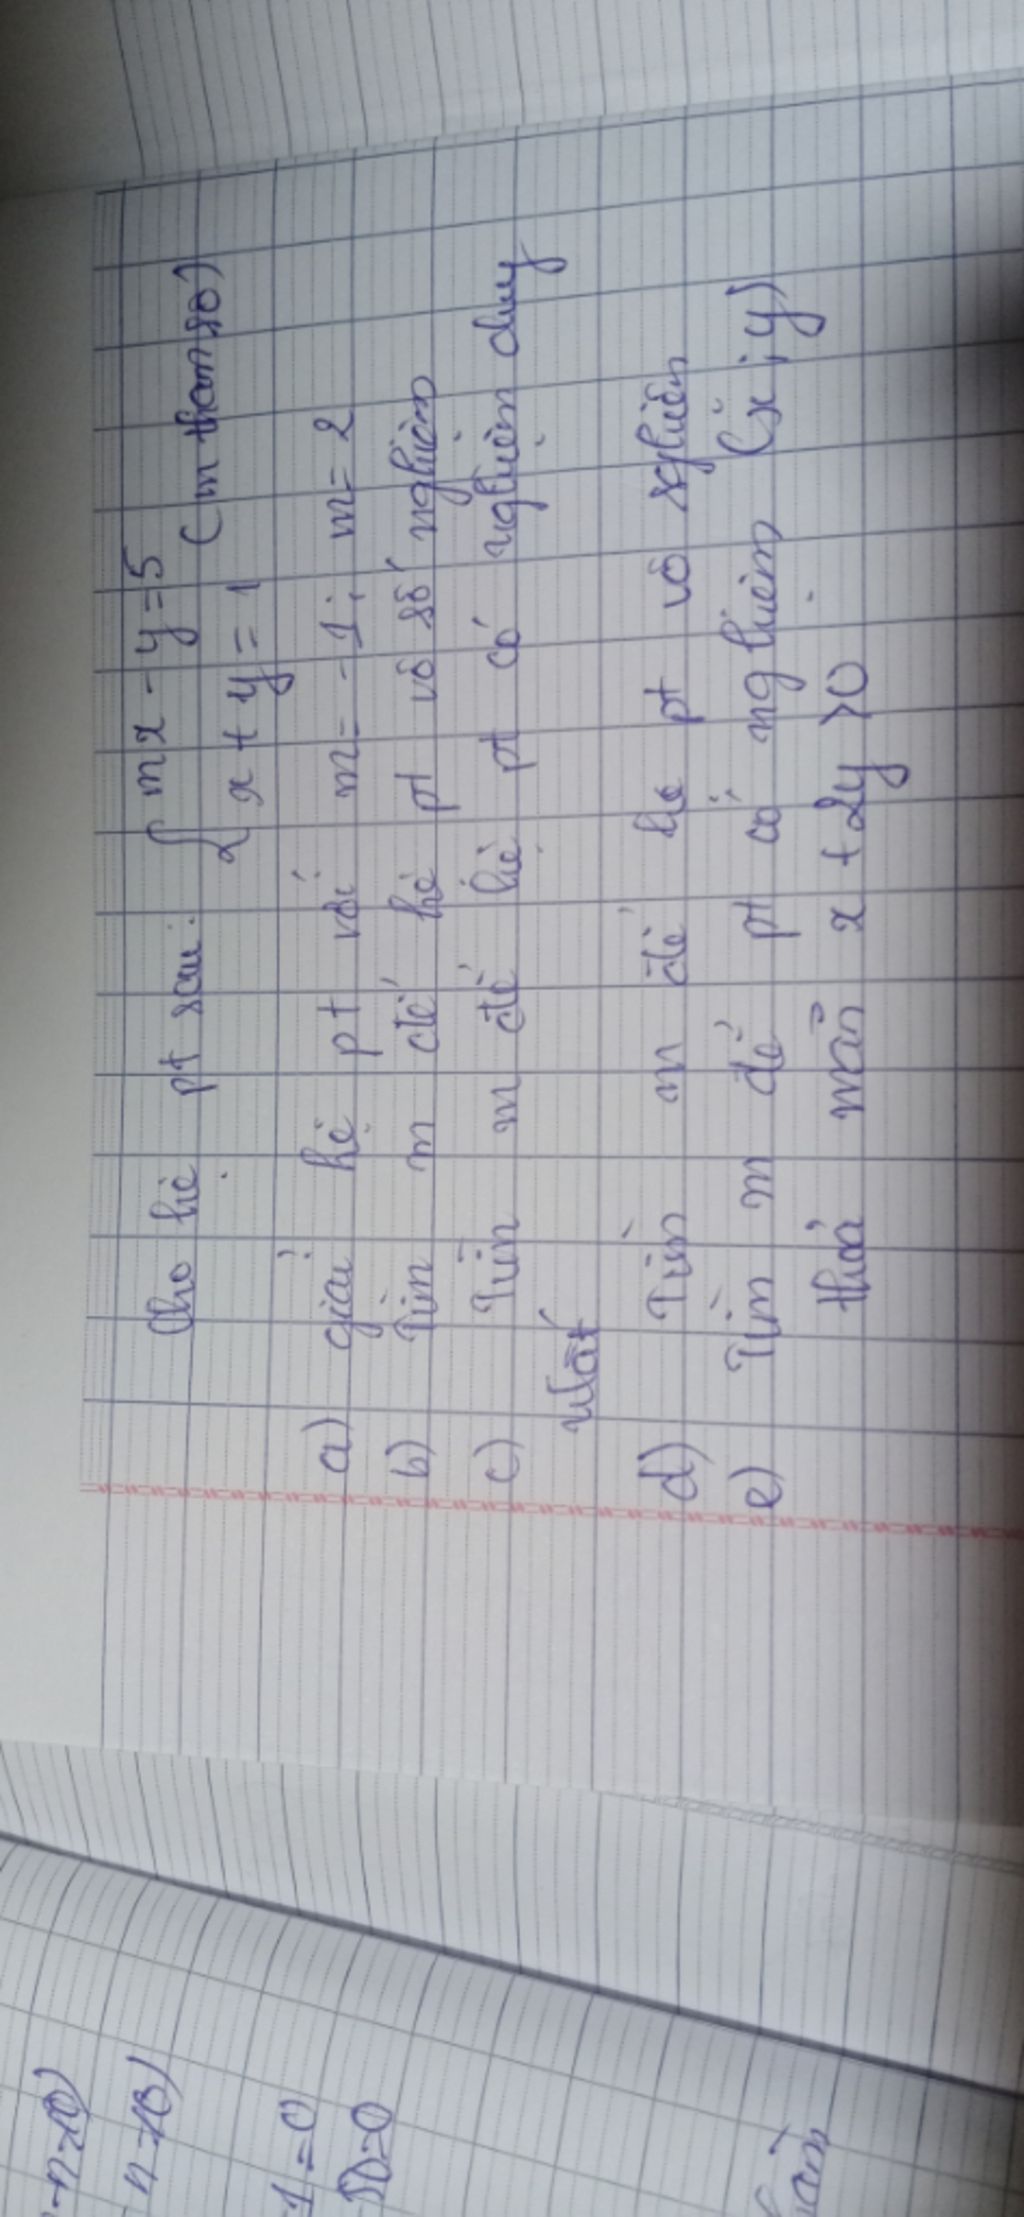 Cho hệ pt sau: { mx - y = 5
x + y = 1 (m tham số)
a) giải hệ pt với m = -1; m = 2
b) Tìm m để hệ pt vô số nghiệm
c) Tìm m để hệ pt có nghiệm duy
nhất
d) Tìm m để hệ pt vô nghiệm
e) Tìm m để pt có nghiệm (x; y)
thoả mãn x + 2y > 0
1 = 0